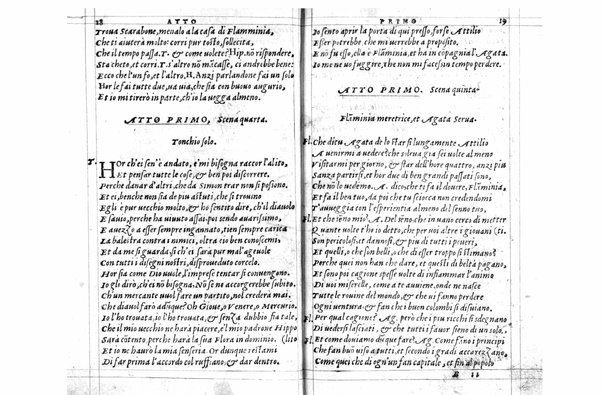 18 ATTO
Troua Scarabone, menalo a la casa di Flamminia,
Che ti aiuterà molto: corri pur tosto, sollecita,
Che il tempo passa. T. & come volete? Hip. nõ rispondere,
Sta cheto, et corri. T. s'altro nõ m'accasse, ci andrebbe bene:
Ecco che l'un fo, et l'altro, H. Anzi parlandone fai un solo
Hor le fai tutte due, ua uia, che sia con buono augurio,
Et io mi tirerò in parte, ch'io la vegga almeno.
ATTO PRIMO, Scena quarta.
Tonchio solo.
T. HOr ch'ei sen'è andato, e'mi bisogna raccor l'alito,
Et pensar tutte le cose, & ben poi discorrere.
Perche danar d'altri, che da Simon trar non si possono.
Et ei, benche non sia de piu astuti, che si trouino
Egli è pur vecchio molto, & ho sentito dire, ch'il diauolo
E sauio, perche ha uiuuto assai: poi sendo auarissimo,
E auezzo a esser sempre ingannato, tien sempre carica
La balestra contra i nimici, oltra ciò ben conoscemi
Et da me si guarda: sì ch'ei sarà pur mal ageuole,
Con tutti i disegni nostri, disproueduto corcelo.
Hor sia come Dio uuole, l'imprese tentar si conuengono.
Io gli dirò, ch'ei nõ bisogna. Nõ se ne accorgerebbe subito.
Ch'un mercante uuol fare un partito, nol crederà mai.
Che diauol farò adũque? Oh Gioue, o Venere, o Mercurio.
Io l'ho trouata, io l'ho trouata, & senza dubbio sia tale,
Che il mio vecchio ne harà piacere, e'l mio padrone Hippo
Sarà cõtento, perche harà la sua Flora in dominio. (lito
Et io ne haurò la mia senseria. Or dunque restami
Di far prima l'accordo col ruffiano, & dar dentro.
PRIMO. 19
Io sento aprir la porta di qui presso, forse Attilio
Esser potrebbe, che mi verrebbe a proposito,
E nõ fu esso, ella è Flamminia, et ha in cõpagnia l'Agata.
Io me ne uo fuggire, che non mi facessin tempo perdere.
ATTO PRIMO. Scena quinta.
Flãminia meretrice, et Agata Serua.
Fl. Che di tu Agata de lo star sì lungamente Attilio
A uenirmi a uedere? che soleua già sei volte al meno
Visitarmi per giorno, & star dell'hore quattro, anzi piu
Sanza partirsi, et hor due dì ben grandi passati sono,
Che nõ lo uedemo. A. dico, che ti fa il douere, Flãminia,
Et fa il ben tuo, da poi che tu sciocca non credendomi
T'auueggia con l'esperientia almeno del senno tuo.
Fl. Et che senno mio? A. Del senno, che in uano cerco di metter
Quante volte t'ho io detto, che per uoi altre i giouani (ti.
Son pericolosi, et dannosi, & piu di tutti i poueri,
Et quelli, o che son belli, o che di esser troppo si stimano?
Perche quei non han che dare, et questi di beltà pagano,
Et sono poi cagione spesse volte di infiammar l'animo
Di uoi miserelle, come a te auuiene, onde ne nasce
Tutte le rouine del mondo, & che ui fanno perdere
Ogni uentura, & fan che i buon colombi si disuiano.
Fl. Per qual cagione? Ag. però che i piu ricchi si sdegnano
Di uedersi lasciati, & che tutti i fauor sieno di un solo.
Fl. Et come douiamo dũque fare? Ag. Come fino i principi
Che fan buõ viso a tutti, et secondo i gradi accarezzano.
Come quei che di ogn'un fan capitale, et fin al popolo
B ii